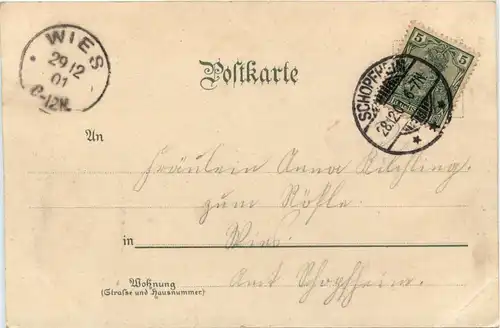 WIES
29 12
01
8-12N.
Postkarte
5 5
SCHOPFHEIM
28.12.01 6-7N.
An
Fräulein Anna Bilchling.
zum Rößle.
in Wies.
Amt Schopfheim.
Wohnung
(Straße und Hausnummer)